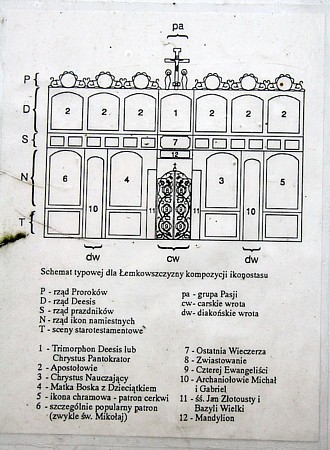 pa
P
D
2 2 2 1 2 2 2
S
7
12
N
6 4 3 5
11 11
10 10
T
dw cw dw
Schemat typowej dla Łemkowszczyzny kompozycji ikogostasu
P - rząd Proroków
D - rząd Deesis
S - rząd prazdników
N - rząd ikon namiestnych
T - sceny starotestamentowe
pa - grupa Pasji
cw- carskie wrota
dw- diakońskie wrota
1 - Trimorphon Deesis lub
Chrystus Pantokrator
2 - Apostołowie
3 - Chrystus Nauczający
4 - Matka Boska z Dzieciątkiem
5 - ikona chramowa - patron cerkwi
6 - szczególnie popularny patron
(zwykle św. Mikołaj)
7 - Ostatnia Wieczerza
8 - Zwiastowanie
9 - Czterej Ewangeliści
10 - Archaniołowie Michał
i Gabriel
11 - śś. Jan Złotousty i
Bazyli Wielki
12 - Mandylion